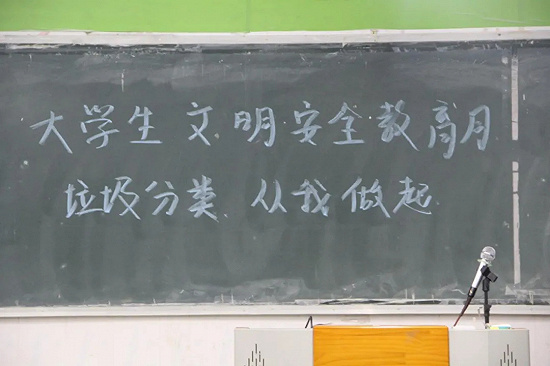 大学生文明安全教育月
垃圾分类 从我做起